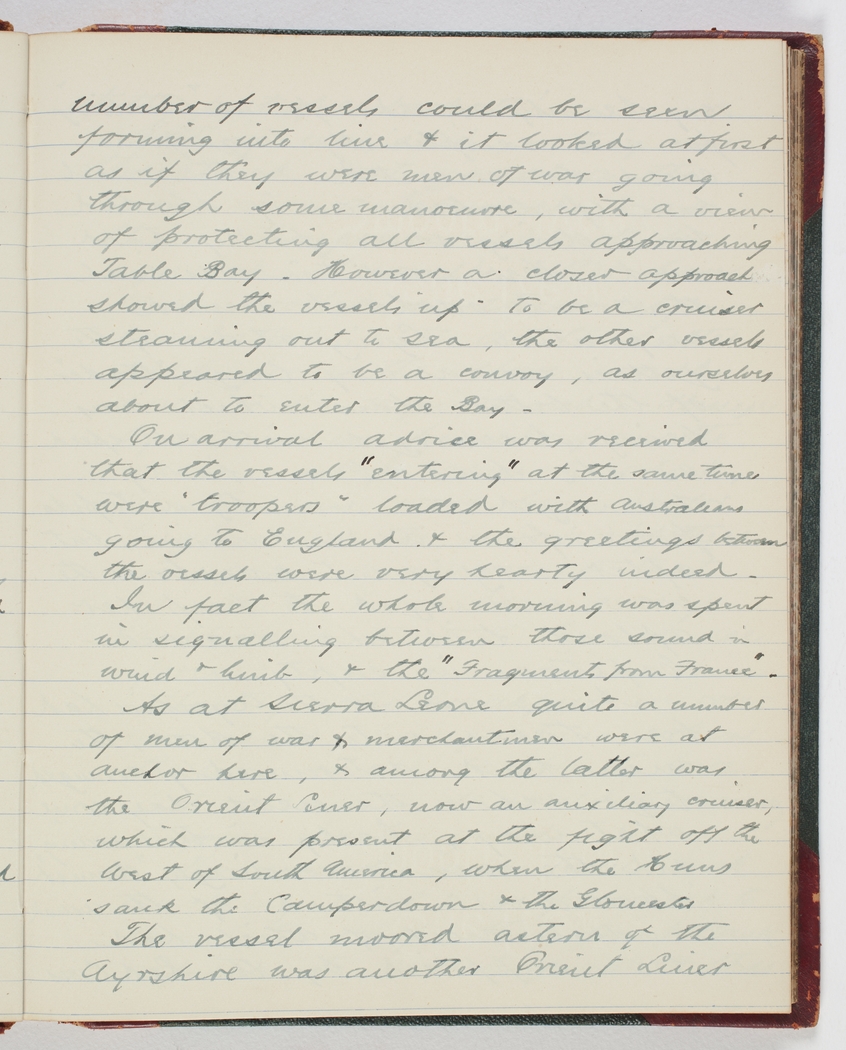 number of vessels could be seen
forming into line & it looked at first
as if they were men of war going
through some manoeuvre, with a view
of protecting all vessels approaching
Table Bay - However a closer approach
showed the vessels up to be a cruiser
steaming out to sea, the other vessels
appeared to be a convoy, as ourselves
about to enter the Bay -
On arrival advice was received
that the vessels "entering" at the same time
were "troopers" loaded with Australians
going to England & the greetings between
the vessels were very hearty indeed -
In fact the whole morning was spent
in signalling between those sound in
wind & limb, & the "Fragments from France".
As at Sierra Leone quite a number
of men of war & merchantmen were at
anchor here, & among the latter was
the Orient Liner, now an auxiliary cruiser,
which was present at the fight off the
West of South America, when the Huns
sank the Camperdown & the Gloucester
The vessel moored astern of the
Ayrshire was another Orient Liner